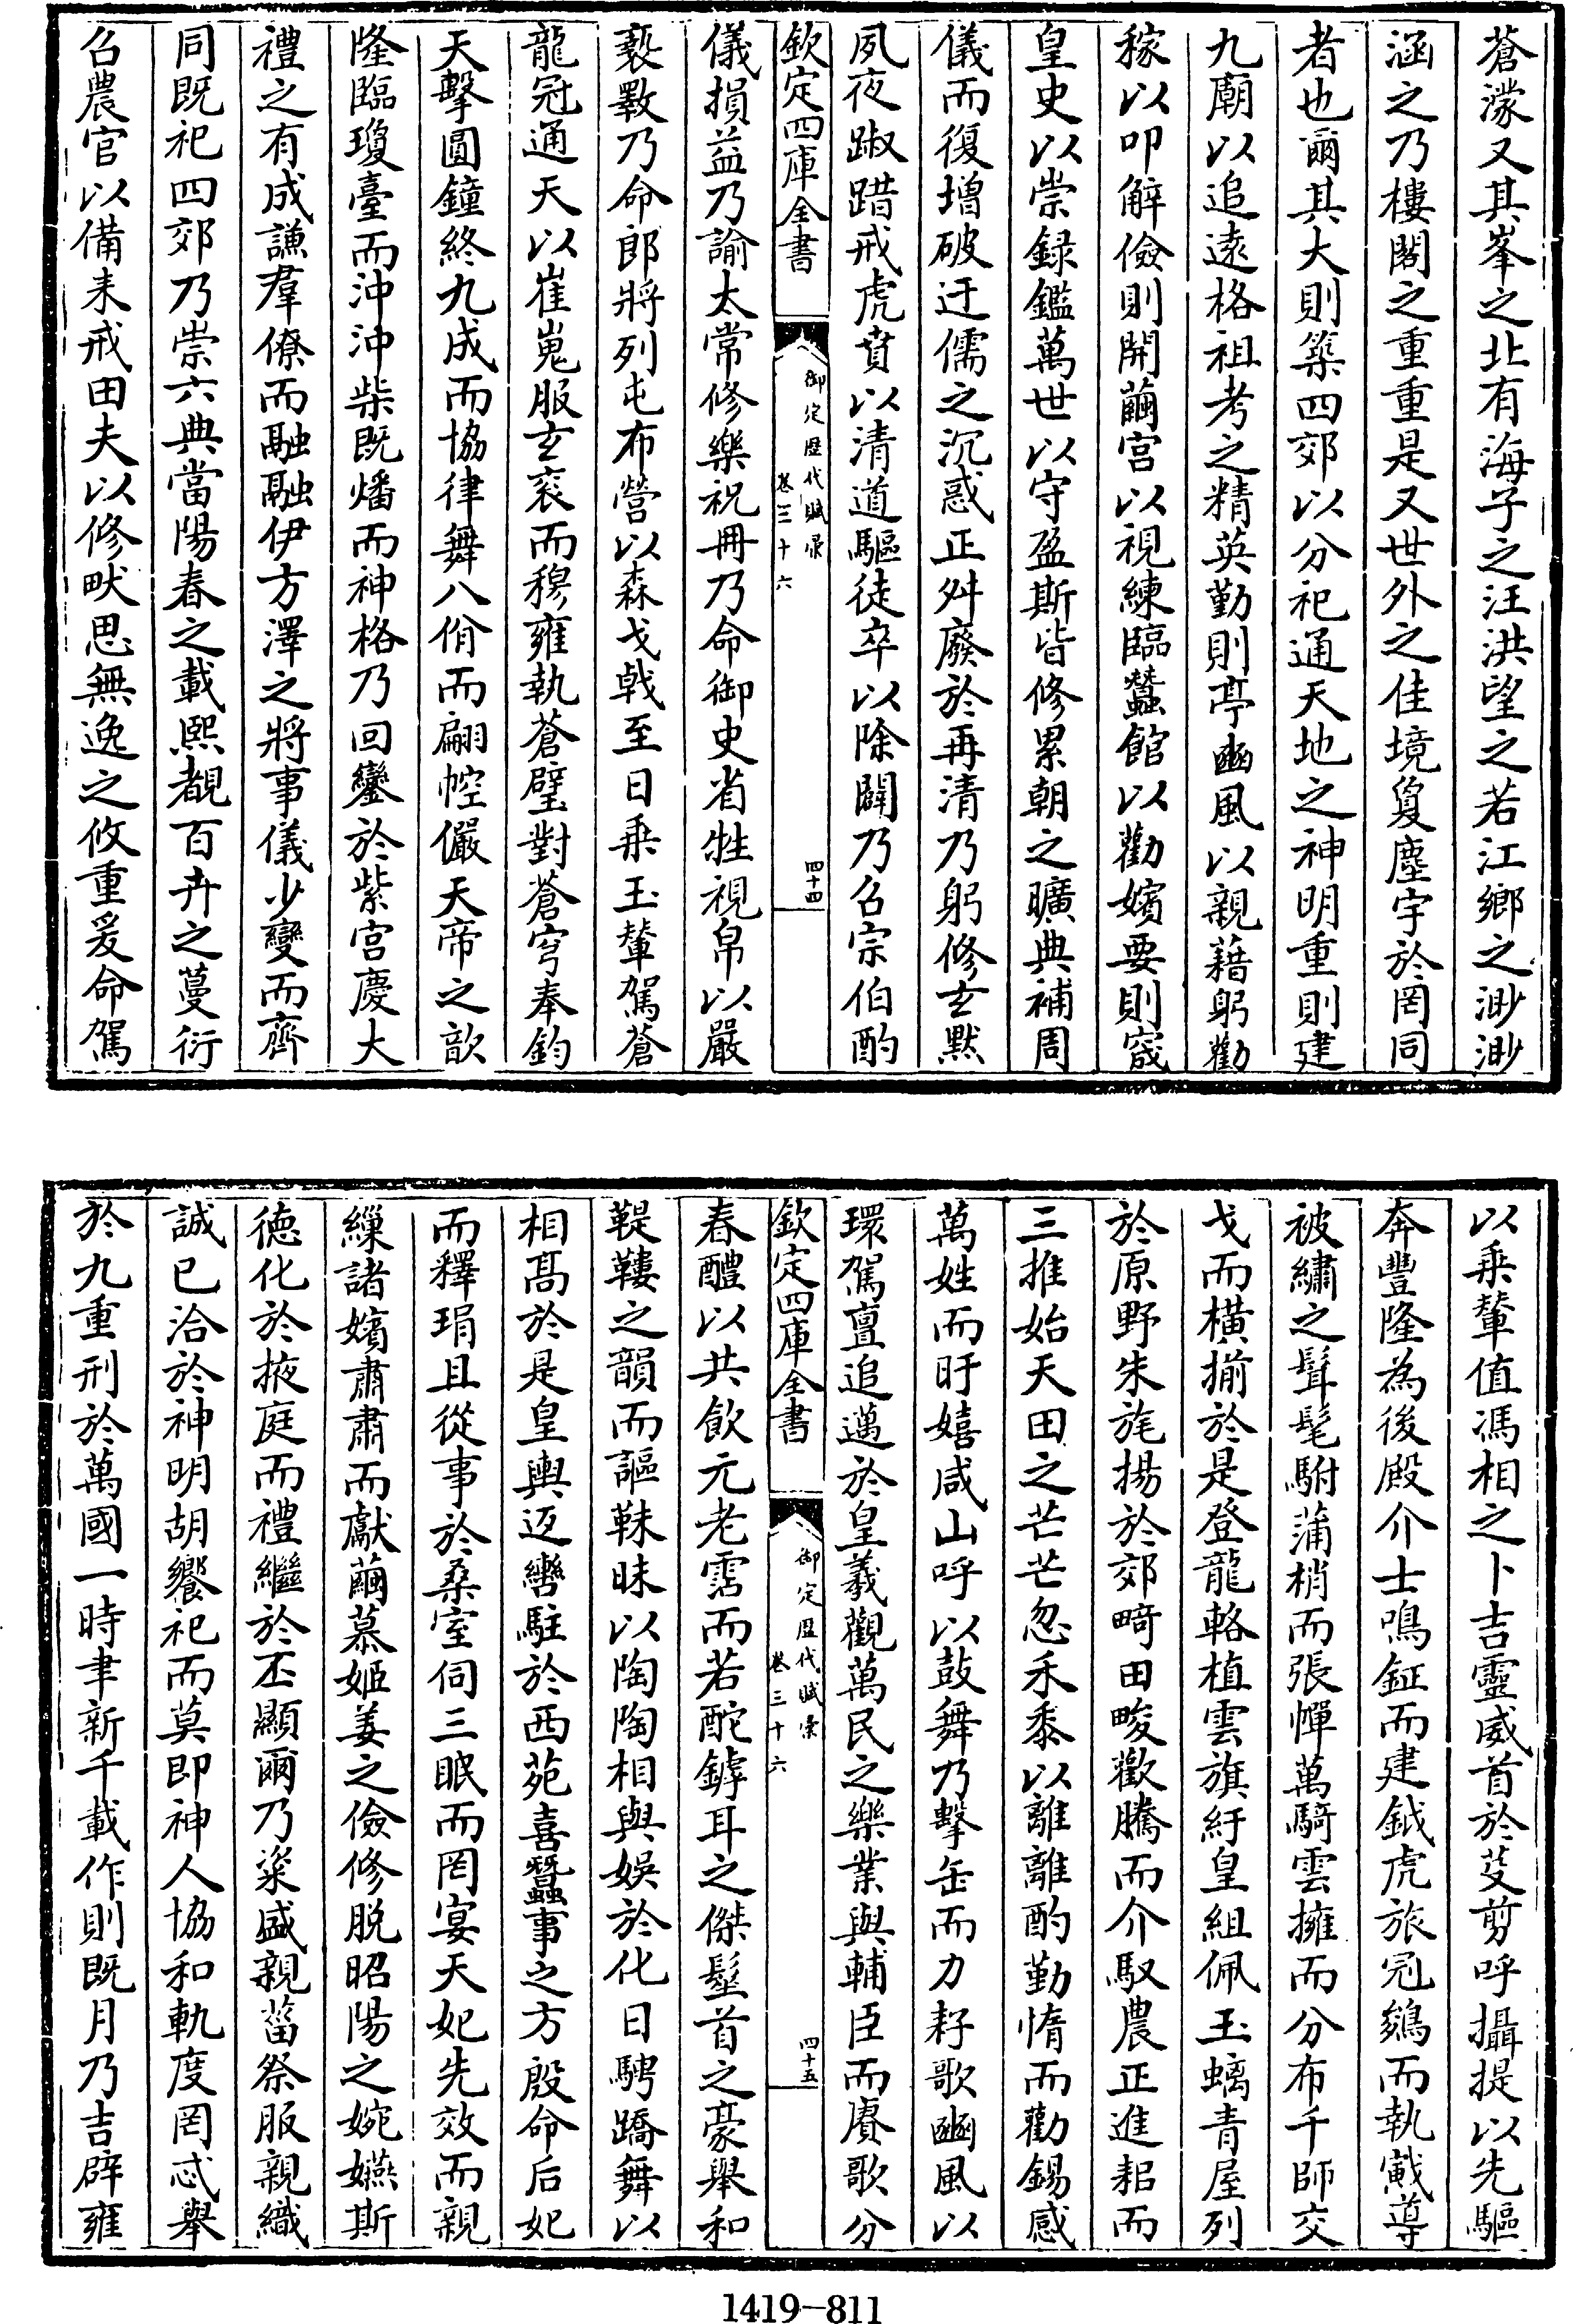 蒼濛又其峯之北有海子之汪洪望之若江鄉之渺渺
涵之乃樓閣之重重是又世外之佳境夐塵宇於罔同
者也爾其大則築四郊以分祀通天地之神明重則建
九廟以追遠格祖考之精英勤則亭豳風以親藉躬勸
稼以叩解儉則開繭宫以視練臨蠶館以勸嬪要則宬
皇史以崇録鑑萬世以守盈斯皆修累朝之曠典補周
儀而復增破迂儒之沉惑正舛廢於再清乃躬修玄默
夙夜踧踖戒虎賁以清道驅徒卒以除闢乃召宗伯酌
欽定四庫全書
御定歴代賦彙
卷三十六
四十四
儀損益乃諭太常修樂祝冊乃命御史省牲視帛以嚴
褻斁乃命郎將列屯布營以森戈戟至日乗玉輦駕蒼
龍冠通天以崔嵬服玄衮而穆雍執蒼璧對蒼穹奉鈞
天擊圓鐘終九成而協律舞八佾而翩悾儼天帝之歆
隆臨瓊臺而沖沖柴既燔而神格乃回鑾於紫宫慶大
禮之有成謙羣僚而融融伊方澤之將事儀少變而齊
同既祀四郊乃崇六典當陽春之載熙覩百卉之蔓衍
召農官以備耒戒田夫以修畎思無逸之攸重爰命駕
以乗輦值馮相之卜吉靈威首於芟剪呼攝提以先驅
奔豐隆為後殿介士鳴鉦而建鉞虎旅冠鶡而執䡴導
被繡之髶髦駙蒲梢而張幝萬騎雲擁而分布千師交
戈而橫揃於是登龍輅植雲旗紆皇組佩玉螭青屋列
於原野朱旄揚於郊畸田畯歡騰而介馭農正進耜而
三推始天田之芒芒忽禾黍以離離酌勤惰而勸錫感
萬姓而盱嬉咸山呼以鼓舞乃擊缶而力耔歌豳風以
環駕亶追邁於皇羲觀萬民之樂業與輔臣而賡歌分
欽定四庫全書
御定歴代賦彙
卷三十六
四十五
春醴以共飲元老霑而若酡鎼耳之傑髽首之豪舉和
鞮鞻之韻而謳韎昧以陶陶相與娛於化日騁蹻舞以
相髙於是皇輿迈轡駐於西苑喜蠶事之方殷命后妃
而釋琄且從事於桑室伺三眠而罔宴天妃先效而親
繅諸嬪肅肅而獻繭慕姬姜之儉修脱昭陽之婉嬿斯
德化於掖庭而禮繼於丕顯爾乃粢盛親菑祭服親織
誠已洽於神明胡饗祀而莫即神人協和軌度罔忒舉
於九重刑於萬國一時聿新千載作則既月乃吉辟雍
1419-811